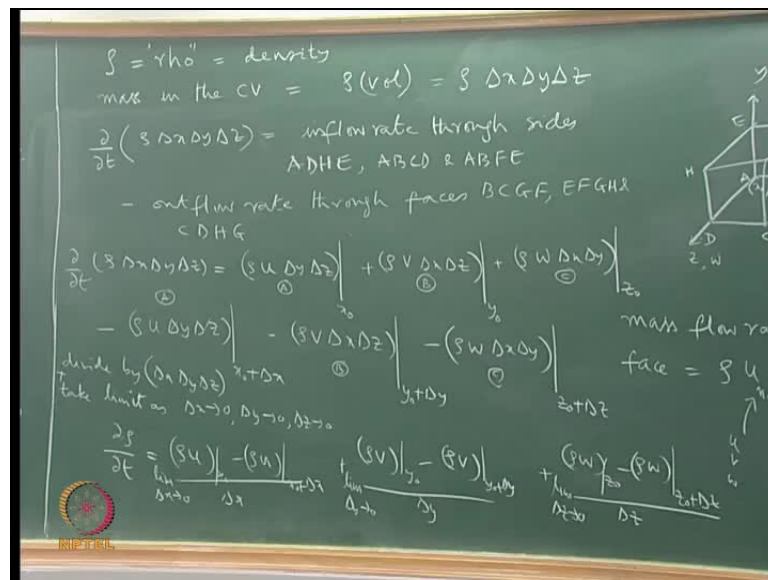 ρ = "rho" = density
mass in the CV = ρ(vol) = ρ Δx Δy Δz
∂/∂t (ρ Δx Δy Δz) = inflow rate through sides
ADHE, ABCD & ABFE
- outflow rate through faces BCGF, EFGH &
CDHG
∂/∂t (ρ Δx Δy Δz) = (ρ u Δy Δz)|x₀ + (ρ V Δx Δz)|y₀ + (ρ W Δx Δy)|z₀
A B C
- (ρ u Δy Δz)|x₀+Δx - (ρ V Δx Δz)|y₀+Δy - (ρ W Δx Δy)|z₀+Δz
A B C
divide by (Δx Δy Δz)
+ take limit as Δx→0, Δy→0, Δz→0
∂ρ/∂t = lim Δx→0 (ρu)|x₀ - (ρu)|x₀+Δx / Δx + lim Δy→0 (ρV)|y₀ - (ρV)|y₀+Δy / Δy + lim Δz→0 (ρW)|z₀ - (ρW)|z₀+Δz / Δz
y
E
H
A
D
z, W
mass flow
face = ρ u
u
v
w
NPTEL